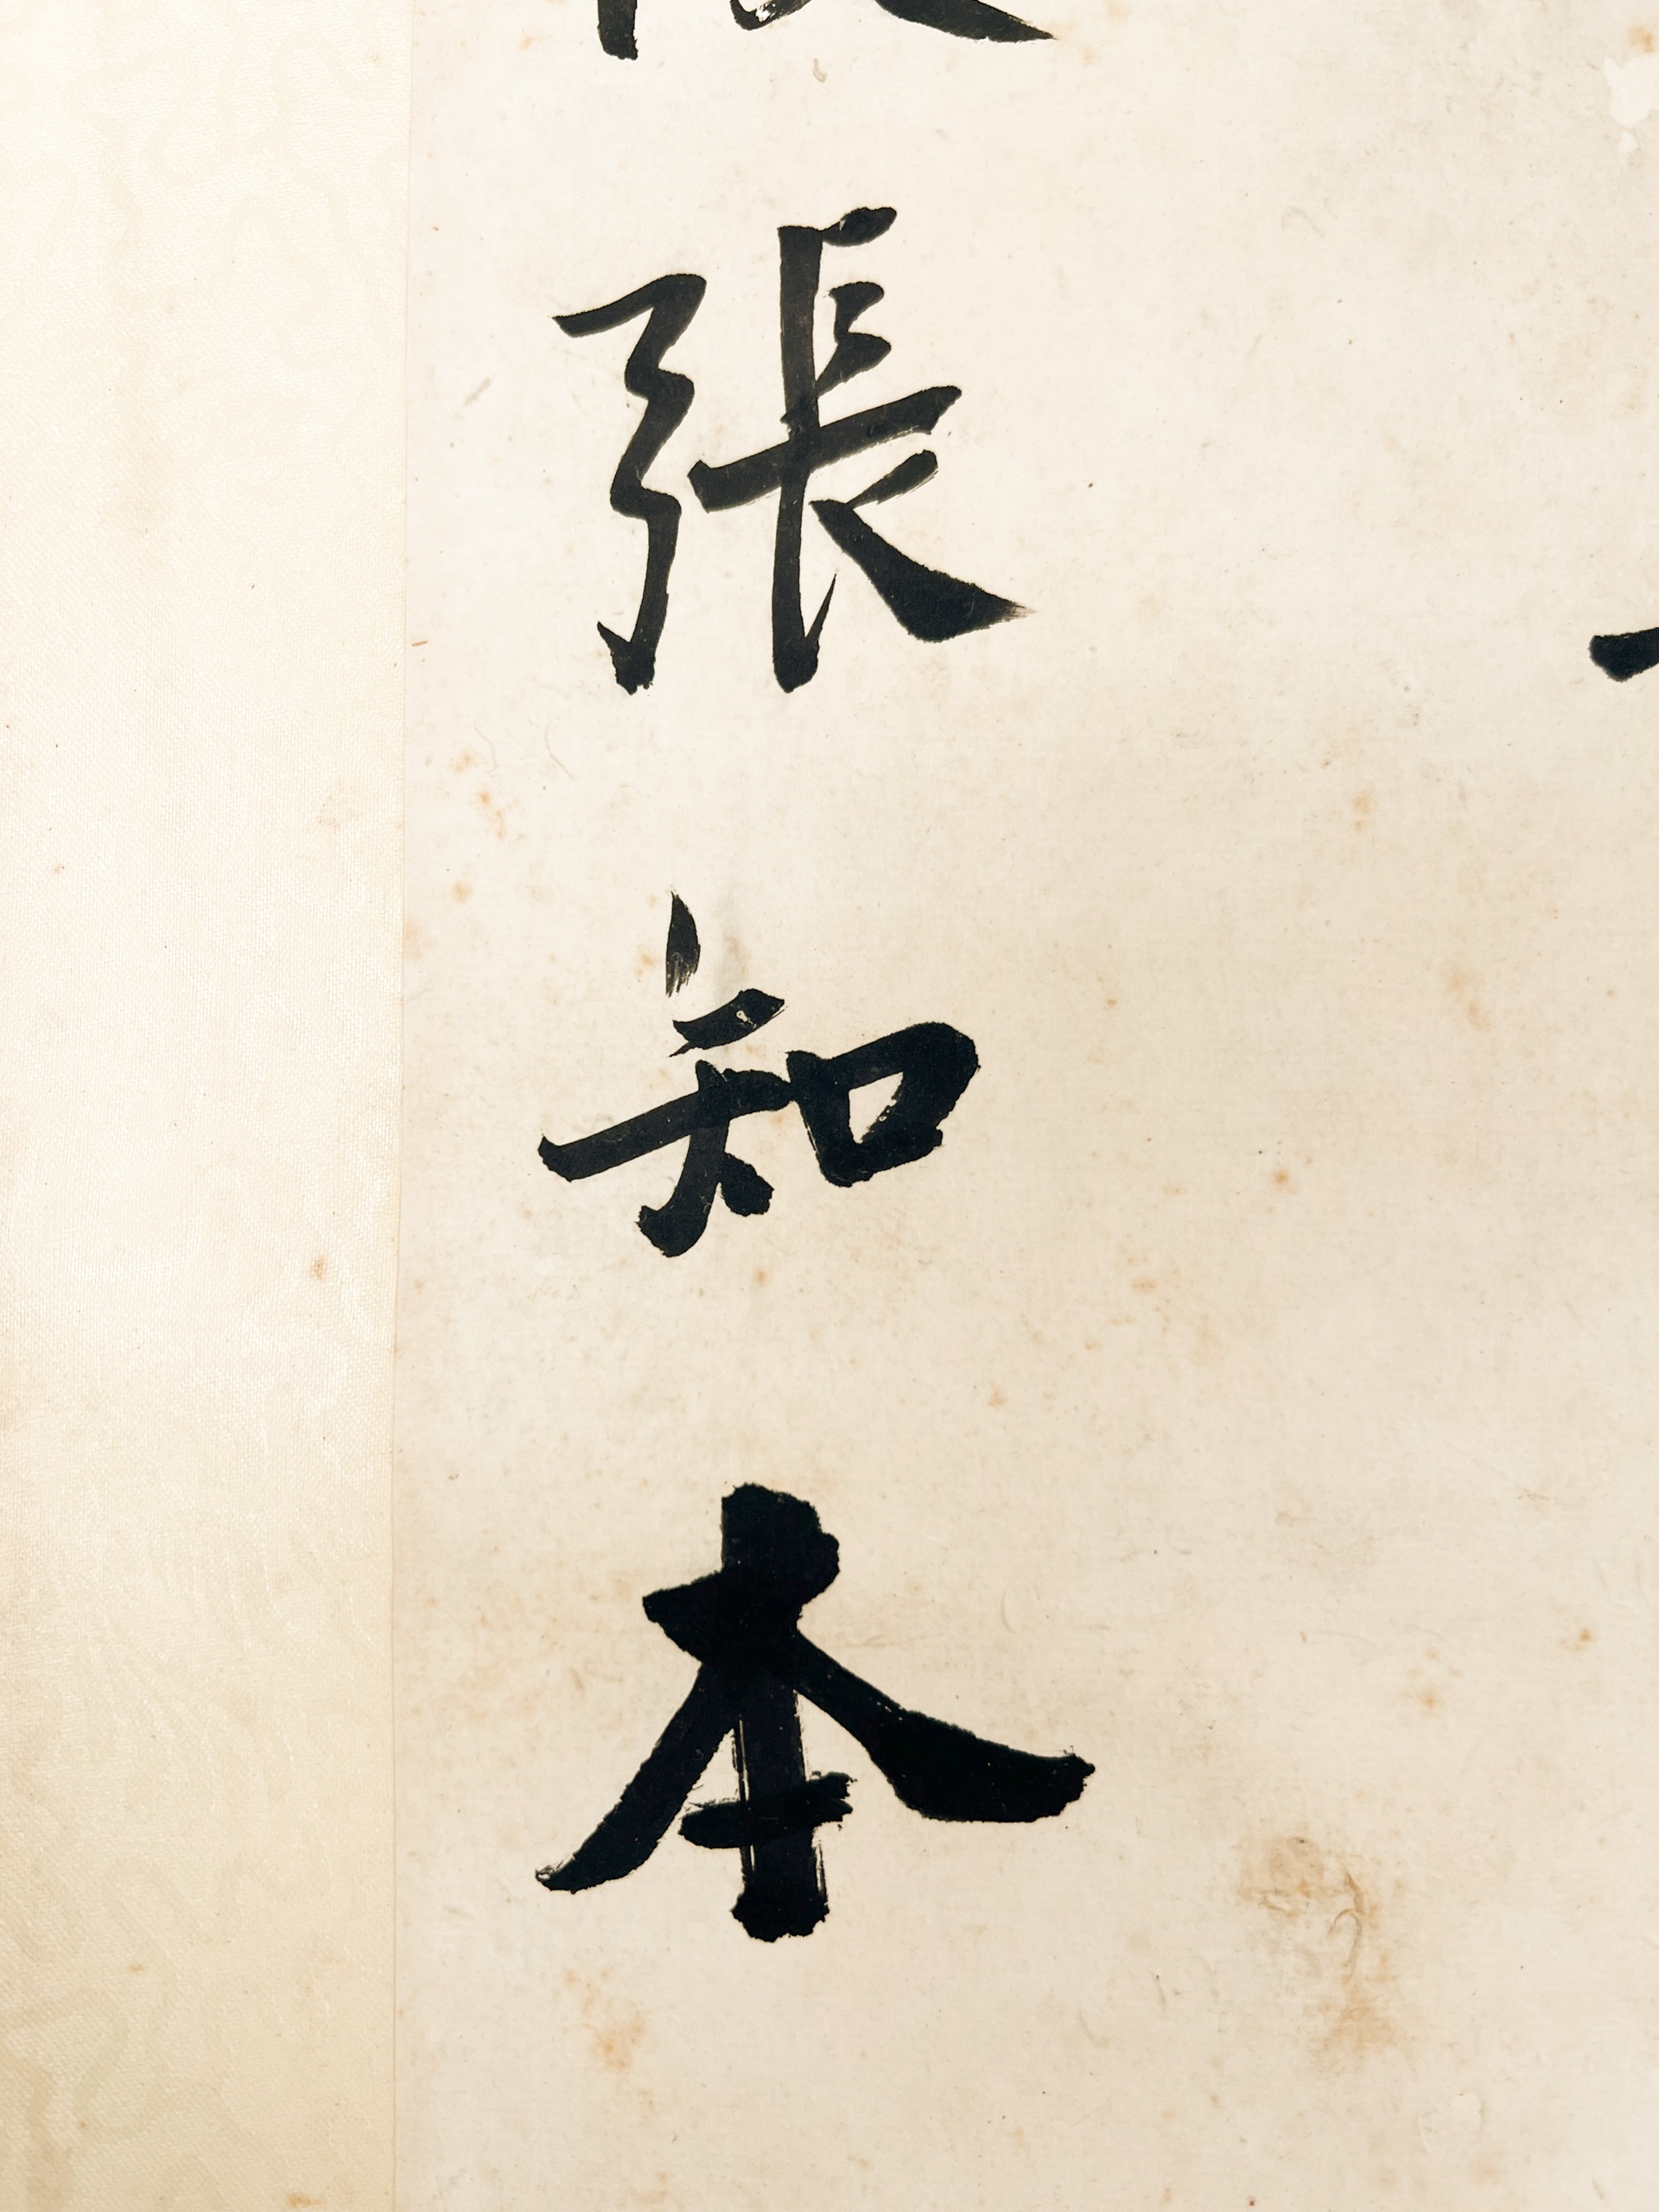 張知本